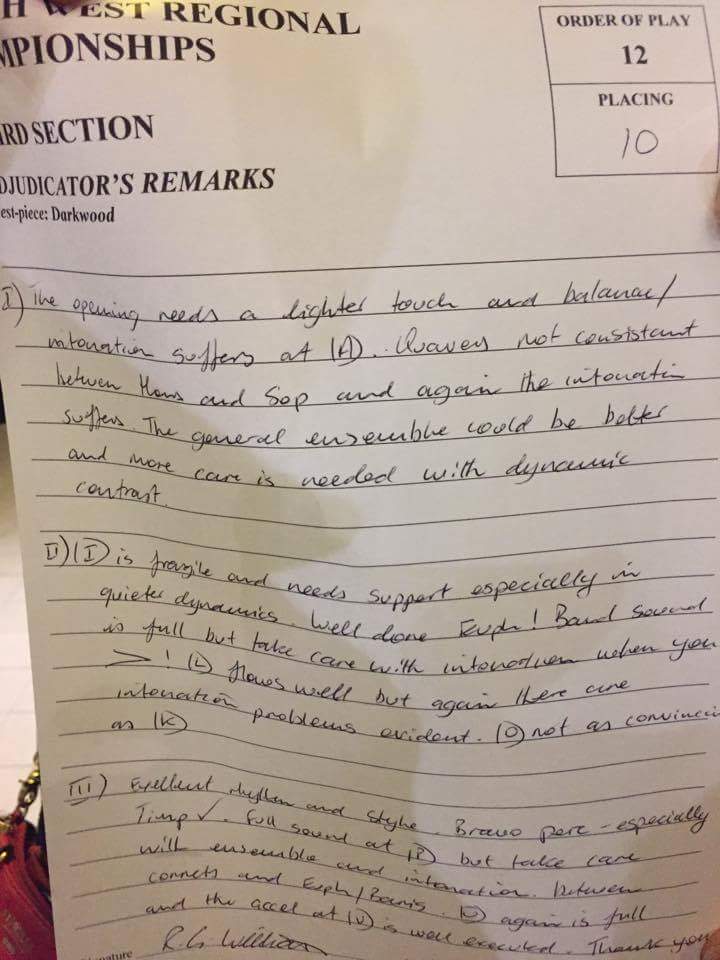 H WEST REGIONAL
MPIONSHIPS
ORDER OF PLAY
12
PLACING
10
RD SECTION
DJUDICATOR'S REMARKS
est-piece: Darkwood
I) The opening needs a lighter touch and balance/
intonation suffers at (A). Quavers not consistant
between Horns and Sop and again the intonation
suffers. The general ensemble could be better
and more care is needed with dynamic
contrast.
II) (I) is fragile and needs support especially in
quieter dynamics. Well done Euph! Band sound
is full but take care with intonation when you
>! (L) flows well but again there are
intonation problems evident. (O) not as convinci
as (K)
III) Excellent rhythm and style. Bravo perc - especially
Timp ✓. Full sound at (P) but take care
with ensemble and intonation between
cornets and Euph/Baris. (U) again is full
and the accel at (V) is well executed. Thank you
nature
R.G.